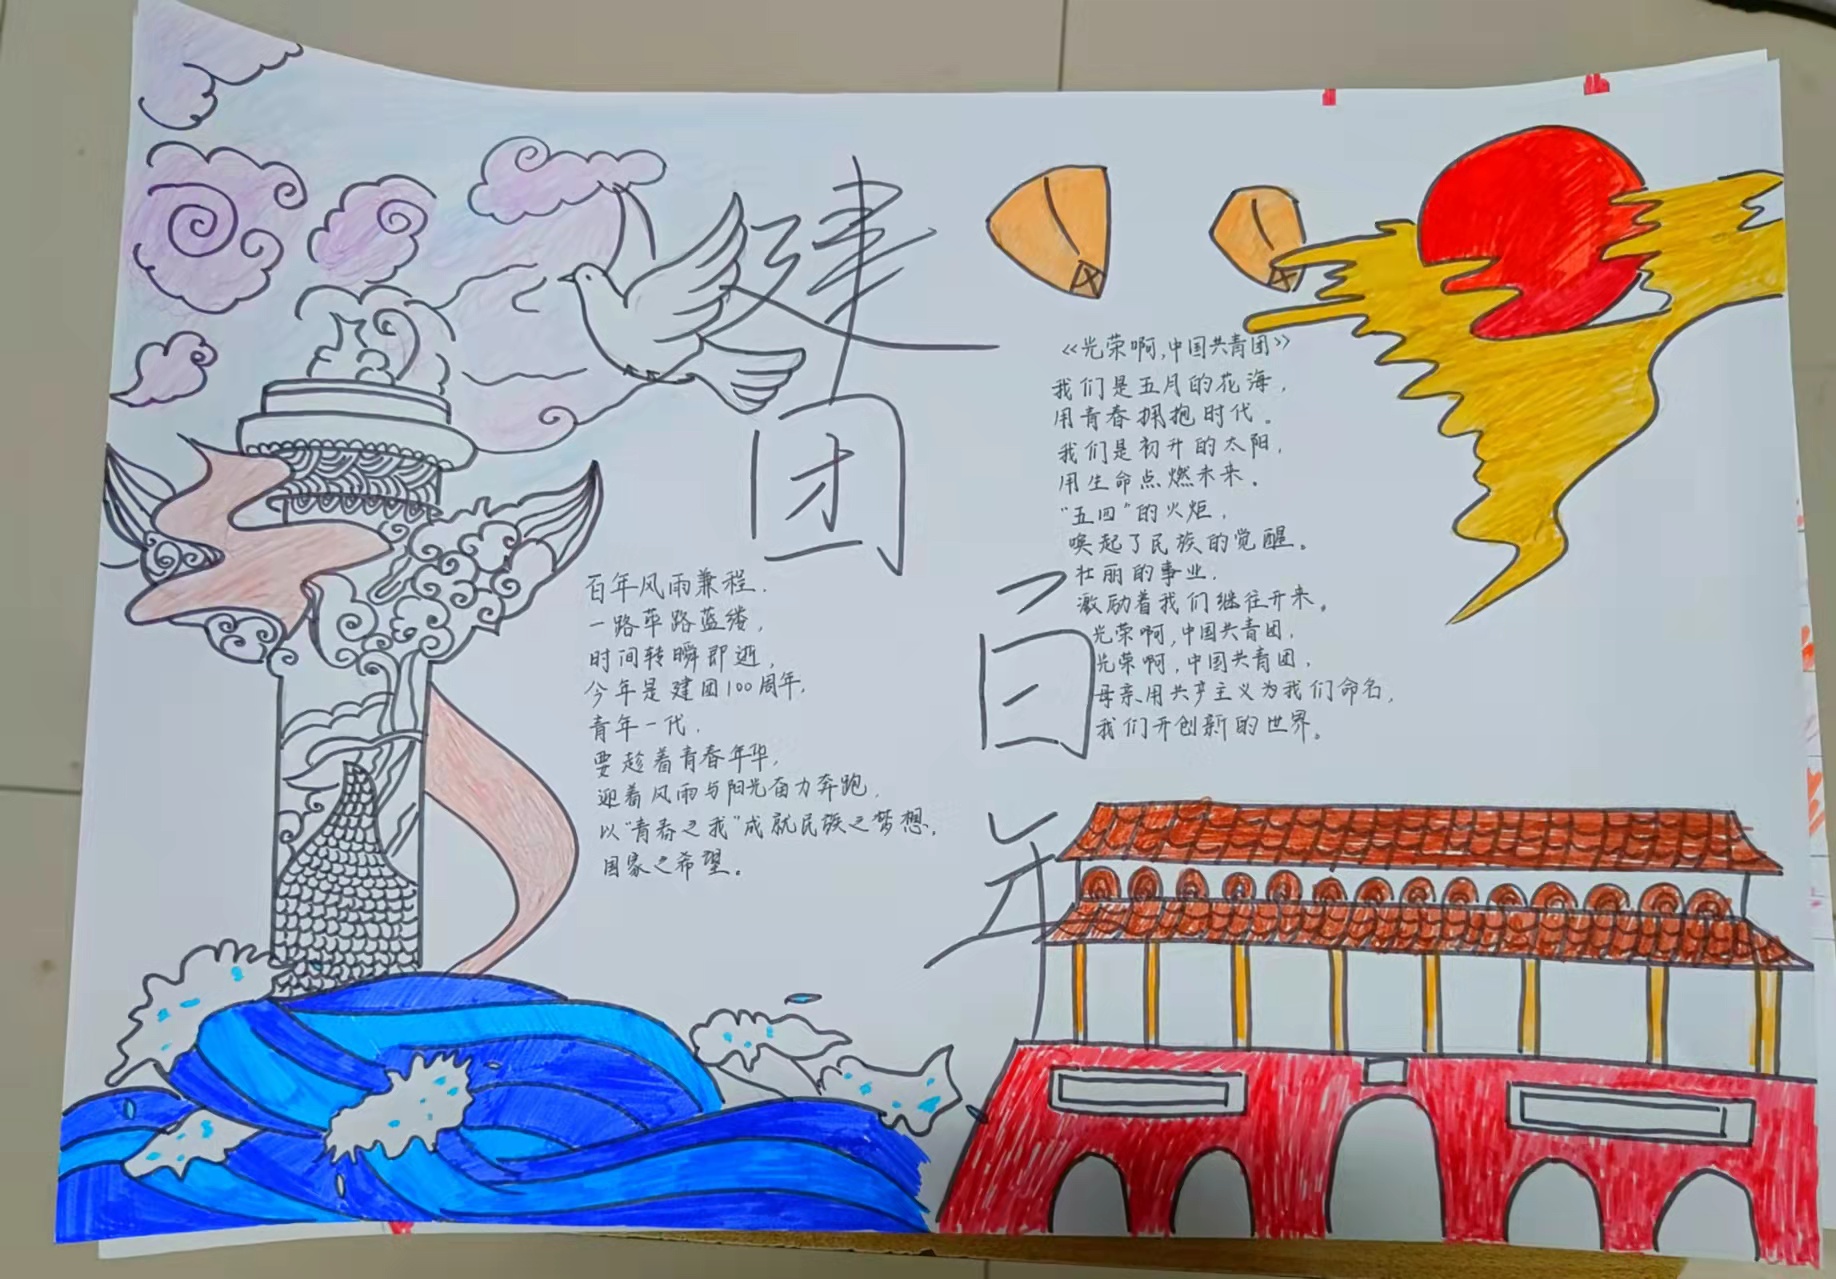 建
团
百
年
百年风雨兼程,
一路荜路蓝缕,
时间转瞬即逝,
今年是建团100周年,
青年一代,
要趁着青春年华,
迎着风雨与阳光奋力奔跑,
以“青春之我”成就民族之梦想,
国家之希望。
《光荣啊,中国共青团》
我们是五月的花海,
用青春拥抱时代。
我们是初升的太阳,
用生命点燃未来。
“五四”的火炬,
唤起了民族的觉醒。
壮丽的事业,
激励着我们继往开来。
光荣啊,中国共青团,
光荣啊,中国共青团,
母亲用共产主义为我们命名,
我们开创新的世界。